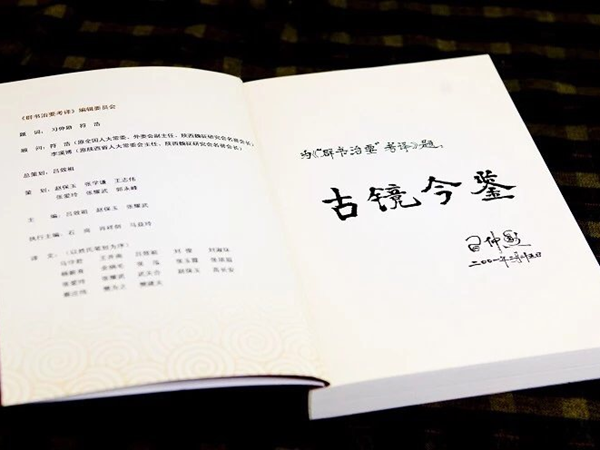 《群书治要考译》编辑委员会
题 词：习仲勋 符 浩
顾 问：符 浩（原全国人大常委、外委会副主任、陕西魏征研究会名誉会长）
李溪溥（原陕西省人大常委会主任、陕西魏征研究会名誉会长）
总策划：吕效祖
策 划：赵保玉 张学谦 王志伟
张爱玲 张耀武 郭永峰
主 编：吕效祖 赵保玉 张耀武
执行主编：石 岗 肖祥剑
译 文：（以姓氏笔划为序）
吕效祖
张爱玲 张耀武 赵保玉
为《“群书治要”考译》题：
古镜今鉴
习仲勋
二〇〇一年二月廿五日